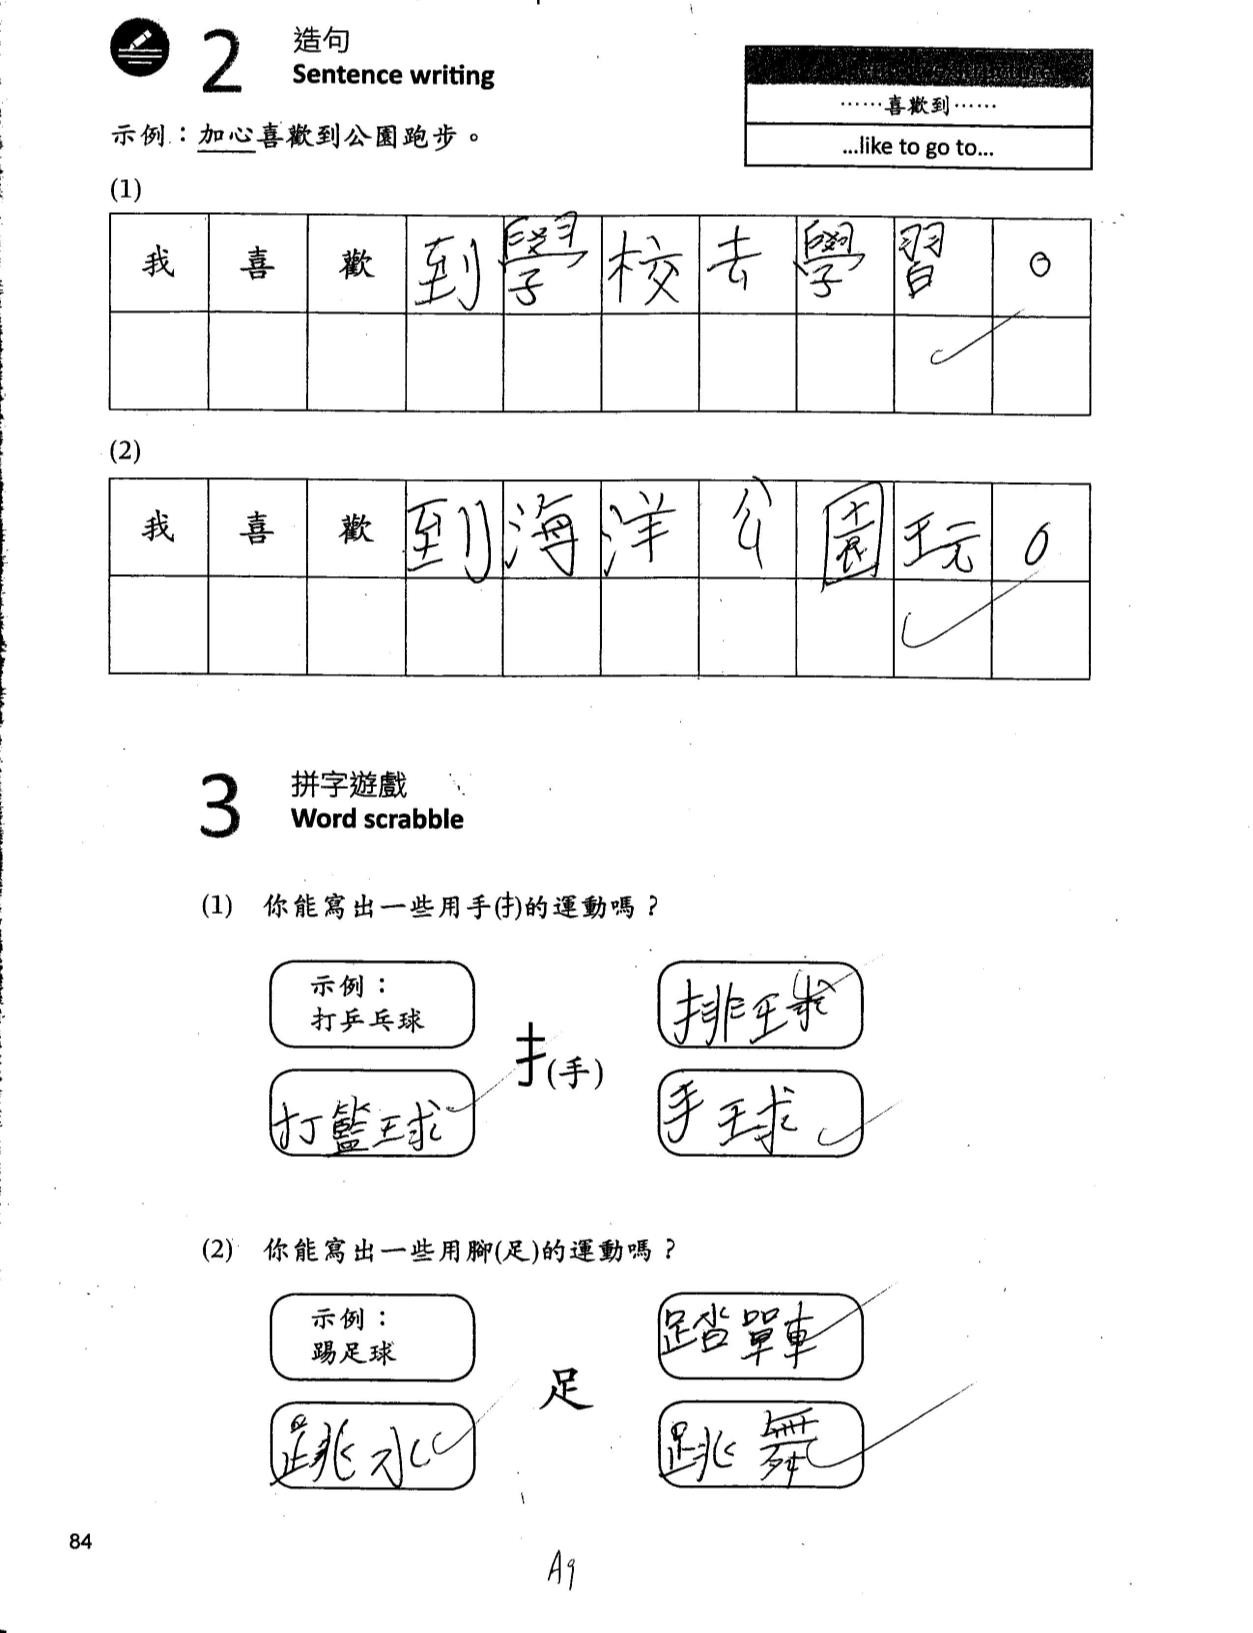 2
造句
Sentence writing
……喜歡到……
...like to go to...
示例：加心喜歡到公園跑步。
(1)
我喜歡到學校去學習。
(2)
我喜歡到海洋公園玩。
3
拼字遊戲
Word scrabble
(1) 你能寫出一些用手(扌)的運動嗎？
示例：
打乒乓球
排球
扌(手)
打籃球
手球
(2) 你能寫出一些用腳(足)的運動嗎？
示例：
踢足球
踏單車
足
跳水
跳舞
84
A9